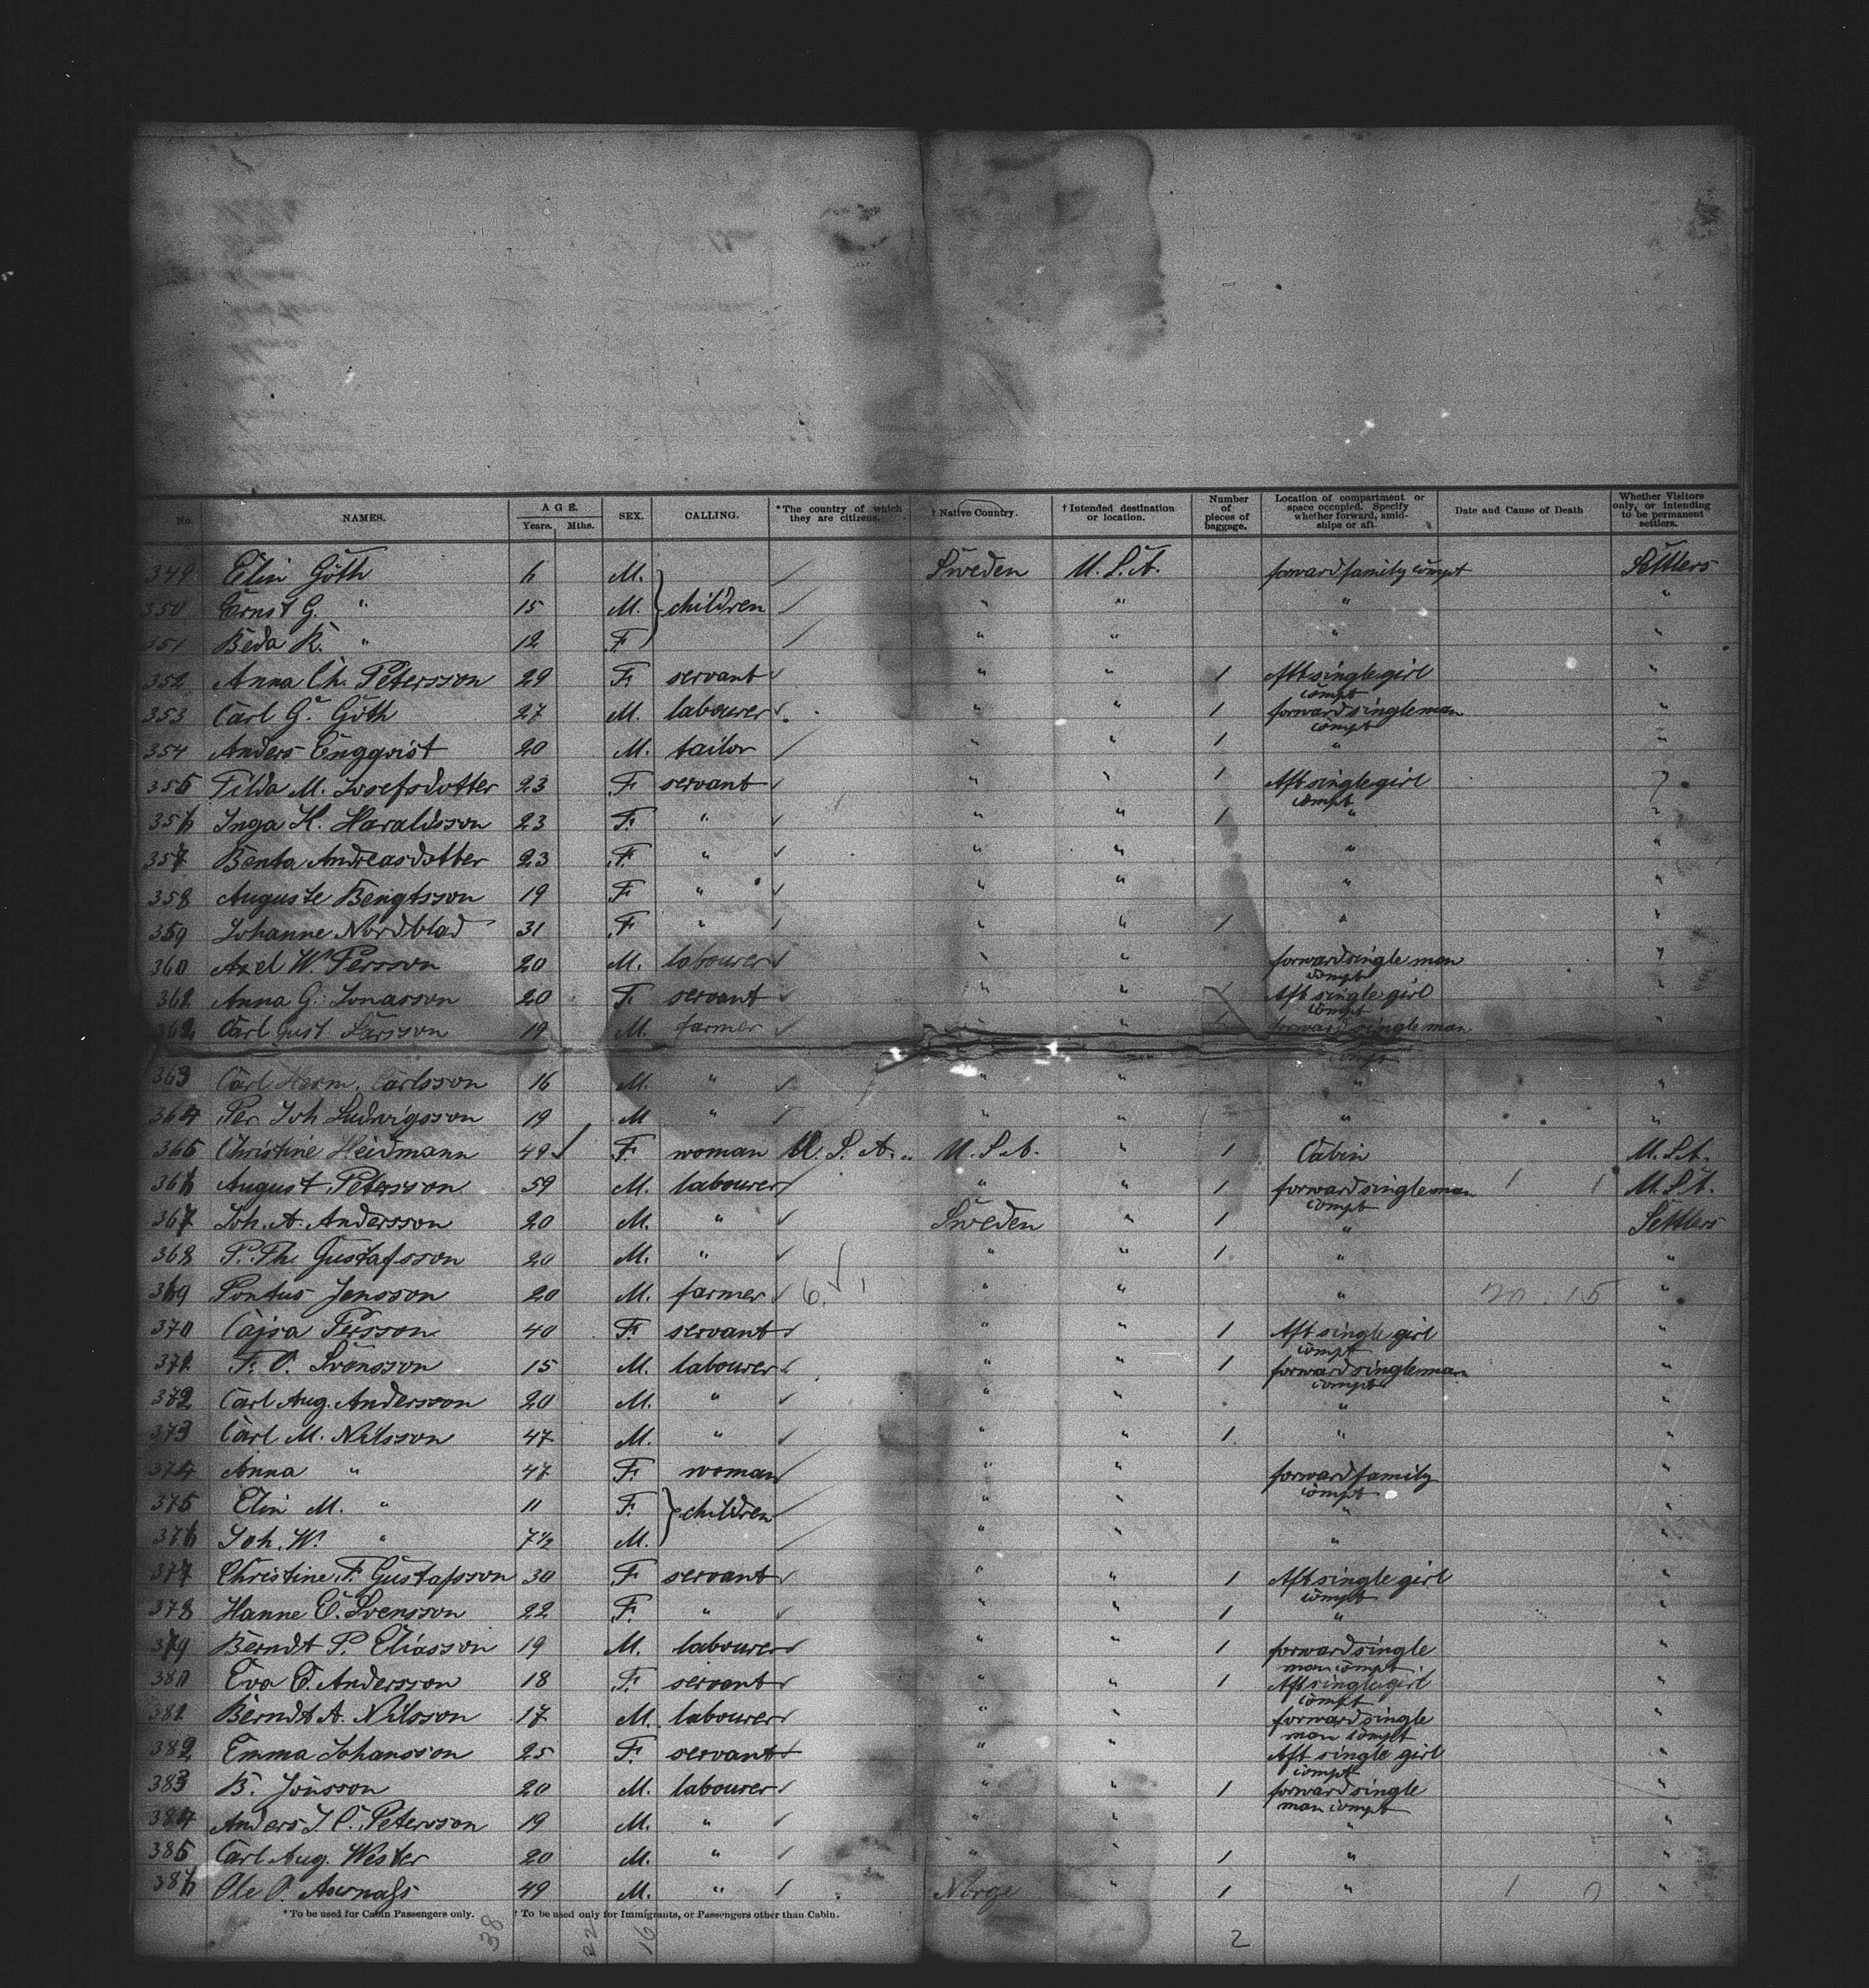 No. NAMES. AGE. Years. Mths. SEX. CALLING. *The country of which they are citizens. † Native Country. † Intended destination or location. Number of pieces of baggage. Location of compartment or space occupied. Specify whether forward, amid-ships or aft. Date and Cause of Death Whether Visitors only, or intending to be permanent settlers.
349 Elin Göth 6 M. Sweden U.S.A. forward family compt Settlers
350 Ernst G. " 15 M. } children " " " "
351 Beda K. " 12 F " " " "
352 Anna Ch. Petersson 29 F. servant " " 1 Aft single girl compt "
353 Carl G. Göth 27 M. labourer " " 1 forward single man compt "
354 Anders Engqvist 20 M. tailor " " 1 " "
355 Tilda M. Josefsdotter 23 F servant " " 1 Aft single girl compt "
356 Inga K. Haraldsson 23 F. " " " 1 " "
357 Benta Andreasdotter 23 F. " " " " "
358 Auguste Bengtsson 19 F " " " " "
359 Johanne Nordblad 31 F " " " 1 " "
360 Axel W. Persson 20 M. labourer " " forward single man compt "
361 Anna G. Jonasson 20 F. servant " " Aft single girl compt "
362 Carl Gust. Larsson 19 M. farmer " " 1 forward single man compt "
363 Carl Herm. Carlsson 16 M. " " " " "
364 Per Joh Ludvigsson 19 M " " " " "
365 Christine Heidmann 49 F. woman U.S.A. U.S.A. " 1 Cabin U.S.A.
366 August Petersson 59 M. labourer " " 1 forward single man compt U.S.A.
367 Joh. A. Andersson 20 M. " Sweden " 1 " Settlers
368 P. Th. Gustafsson 20 M. " " " 1 " "
369 Pontus Jensson 20 M. farmer 6. " " " 20 . 15 "
370 Cajsa Persson 40 F. servant " " 1 Aft single girl compt "
371 F. O. Svensson 15 M. labourer " " 1 forward single man compt "
372 Carl Aug. Andersson 20 M. " " " " "
373 Carl M. Nilsson 47 M. " " " 1 " "
374 Anna " 47 F. woman " " forward family compt "
375 Elin M. " 11 F. } children " " " "
376 Joh. W. " 7½ M. " " " "
377 Christine F. Gustafsson 30 F servant " " 1 Aft single girl compt "
378 Hanne C. Svensson 22 F. " " " 1 " "
379 Berndt P. Eliasson 19 M. labourer " " 1 forward single man compt "
380 Eva C. Andersson 18 F. servant " " 1 Aft single girl compt "
381 Berndt A. Nilsson 17 M. labourer " " forward single man compt "
382 Emma Johansson 25 F. servant " " Aft single girl compt "
383 B. Jönsson 20 M. labourer " " 1 forward single man compt "
384 Anders J. C. Petersson 19 M. " " " " "
385 Carl Aug. Wester 20 M. " " " 1 " "
386 Ole O. 49 M. " Norge " 1 " "
*To be used for Cabin Passengers only. † To be used only for Immigrants, or Passengers other than Cabin.
38 22 16 2